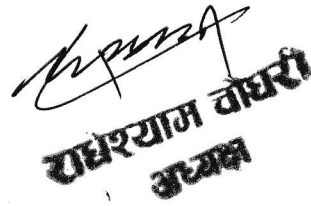 राधेश्याम चौधरी
अध्यक्ष